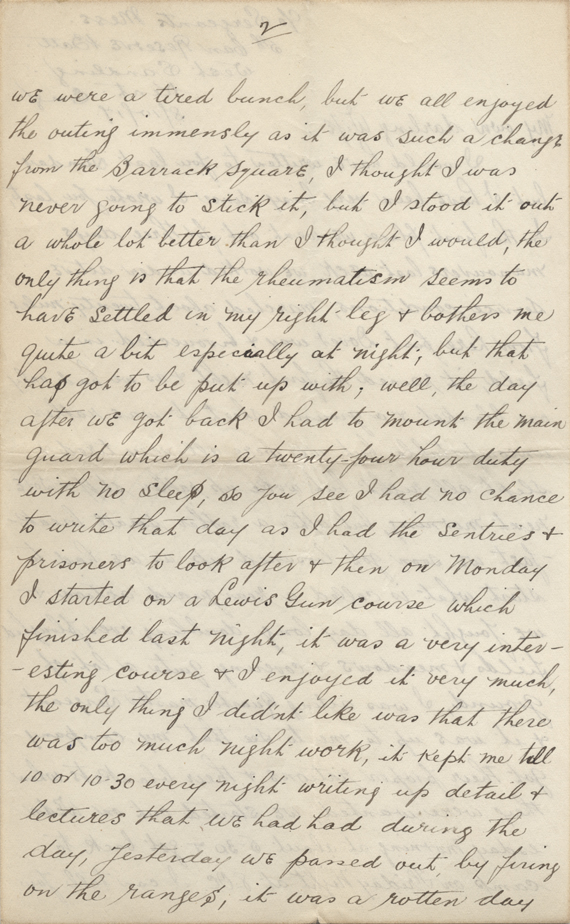 2
we were a tired bunch, but we all enjoyed
the outing immensly as it was such a change
from the Barrack square, I thought I was
never going to stick it, but I stood it out
a whole lot better than I thought I would, the
only thing is that the rheumatism seems to
have settled in my right leg & bothers me
quite a bit especially at night, but that
has got to be put up with; well, the day
after we got back I had to mount the main
guard which is a twenty-four hour duty
with no sleep, so you see I had no chance
to write that day as I had the sentries &
prisoners to look after & then on Monday
I started on a Lewis Gun course which
finished last night, it was a very inter-
-esting course & I enjoyed it very much,
the only thing I didnt like was that there
was too much night work, it kept me till
10 or 10-30 every night writing up detail &
lectures that we had had during the
day, Yesterday we passed out, by firing
on the ranges, it was a rotten day